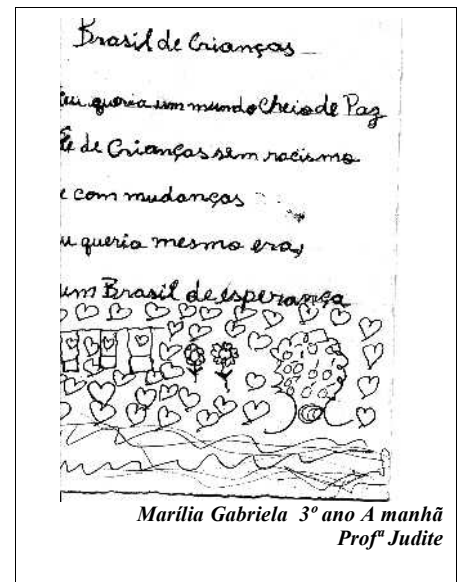 Brasil de Crianças
Eu queria um mundo Cheio de Paz
E de Crianças sem racismo
e com mudanças
u queria mesmo era,
um Brasil de esperança
Marília Gabriela 3º ano A manhã
Profª Judite